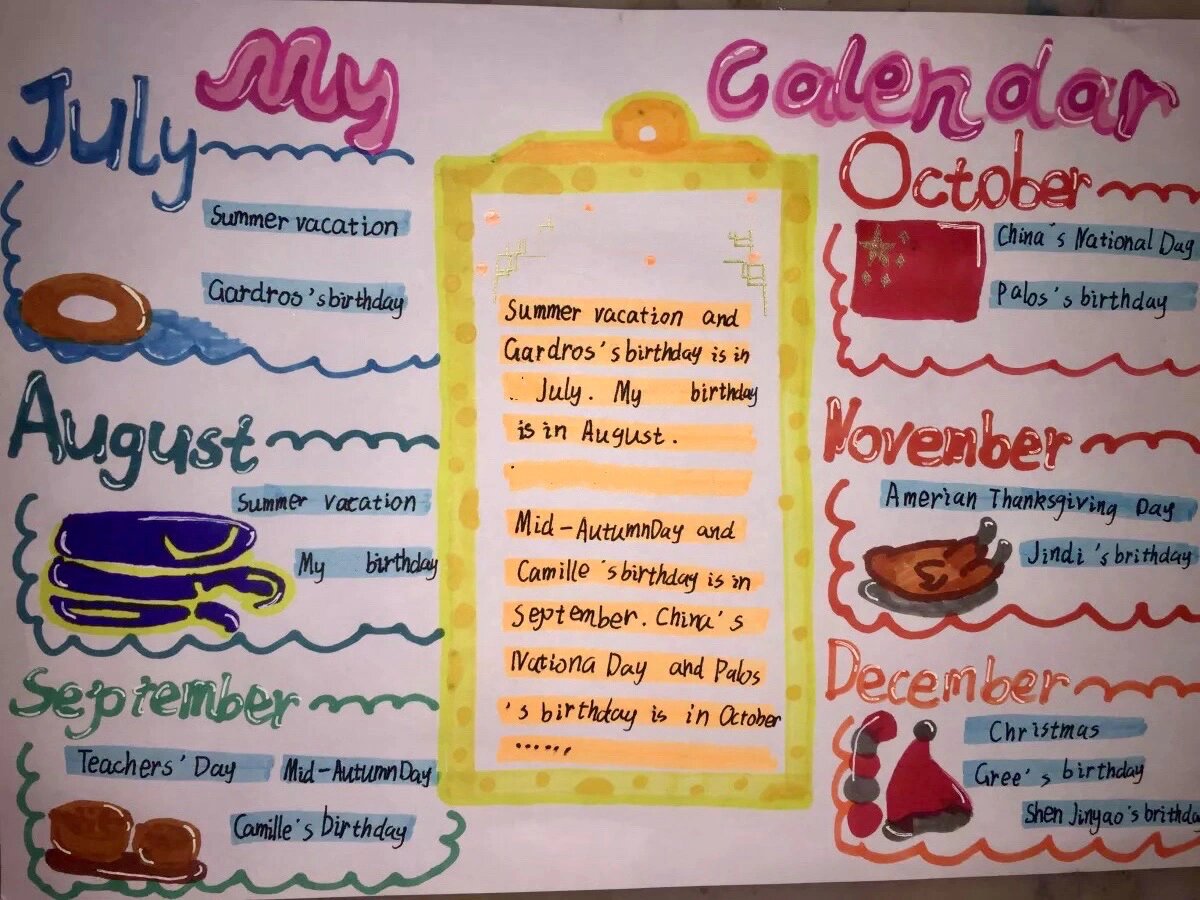 My Calendar
July
Summer vacation
Gardros's birthday
August
Summer vacation
My birthday
September
Teachers' Day Mid-AutumnDay
Camille's birthday
Summer vacation and
Gardros's birthday is in
July. My birthday
is in August.
Mid-AutumnDay and
Camille's birthday is in
September. China's
Nationa Day and Palos
's birthday is in October
······
October
China's National Day
Palos's birthday
November
Amerian Thanksgiving Day
Jindi's brithday
December
Christmas
Gree's birthday
Shen Jinyao's brithda